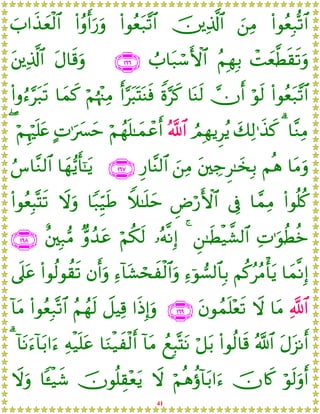 ٱتُّبِعُوا۟ مِنَ ٱلَّذِينَ ٱتَّبَعُوا۟ وَرَأَوُا۟ ٱلْعَذَابَ
وَتَقَطَّعَتْ بِهِمُ ٱلْأَسْبَابُ ﴿١٦٦﴾ وَقَالَ ٱلَّذِينَ
ٱتَّبَعُوا۟ لَوْ أَنَّ لَنَا كَرَّةً فَنَتَبَرَّأَ مِنْهُمْ كَمَا تَبَرَّءُوا۟
مِنَّا ۗ كَذَٰلِكَ يُرِيهِمُ ٱللَّهُ أَعْمَـٰلَهُمْ حَسَرَٰتٍ عَلَيْهِمْ ۖ
وَمَا هُم بِخَـٰرِجِينَ مِنَ ٱلنَّارِ ﴿١٦٧﴾ يَـٰٓأَيُّهَا ٱلنَّاسُ
كُلُوا۟ مِمَّا فِى ٱلْأَرْضِ حَلَـٰلًا طَيِّبًا وَلَا تَتَّبِعُوا۟
خُطُوَٰتِ ٱلشَّيْطَـٰنِ ۚ إِنَّهُۥ لَكُمْ عَدُوٌّ مُّبِينٌ ﴿١٦٨﴾
إِنَّمَا يَأْمُرُكُم بِٱلسُّوٓءِ وَٱلْفَحْشَآءِ وَأَن تَقُولُوا۟ عَلَى
ٱللَّهِ مَا لَا تَعْلَمُونَ ﴿١٦٩﴾ وَإِذَا قِيلَ لَهُمُ ٱتَّبِعُوا۟ مَآ
أَنزَلَ ٱللَّهُ قَالُوا۟ بَلْ نَتَّبِعُ مَآ أَلْفَيْنَا عَلَيْهِ ءَابَآءَنَآ ۗ
أَوَلَوْ كَانَ ءَابَآؤُهُمْ لَا يَعْقِلُونَ شَيْـًٔا وَلَا
41